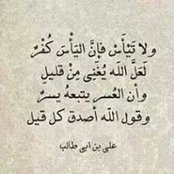 ولا تَيْأَسْ فإنَّ اليَأْسَ كُفْرٌ
لعَلَّ اللَه يُغْنِى مِنْ قليلِ
وأن العُسر يتبعهُ يسرٌ
وقول اللّه أصدق كل قيل
على بن ابى طالب